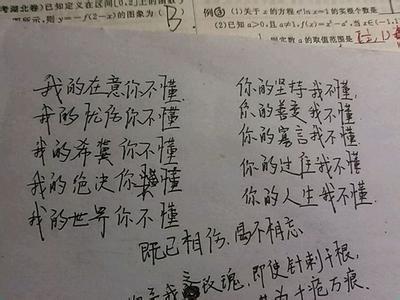 考湖北卷)已知定义在区间[0,2]上的函数
图所示,则y=-f(2-x)的图象为( B
例③(1)关于x的方程eˣlnx=1的实根个数是
(2)已知a>0,且a≠1,f(x)=x²-aˣ,当x∈(-1,
则实数a的取值范围是
我的在意你不懂.
我的你不懂
我的希冀你不懂
我的绝决你懂
我的世界你不懂
你的坚持我不懂,
你的善变我不懂
你的寡言我不懂.
你的过往我不懂
你的人生我不懂.
既已相伤、曷不相忘
我玫瑰,即使针刺千根,
千疮万痕.